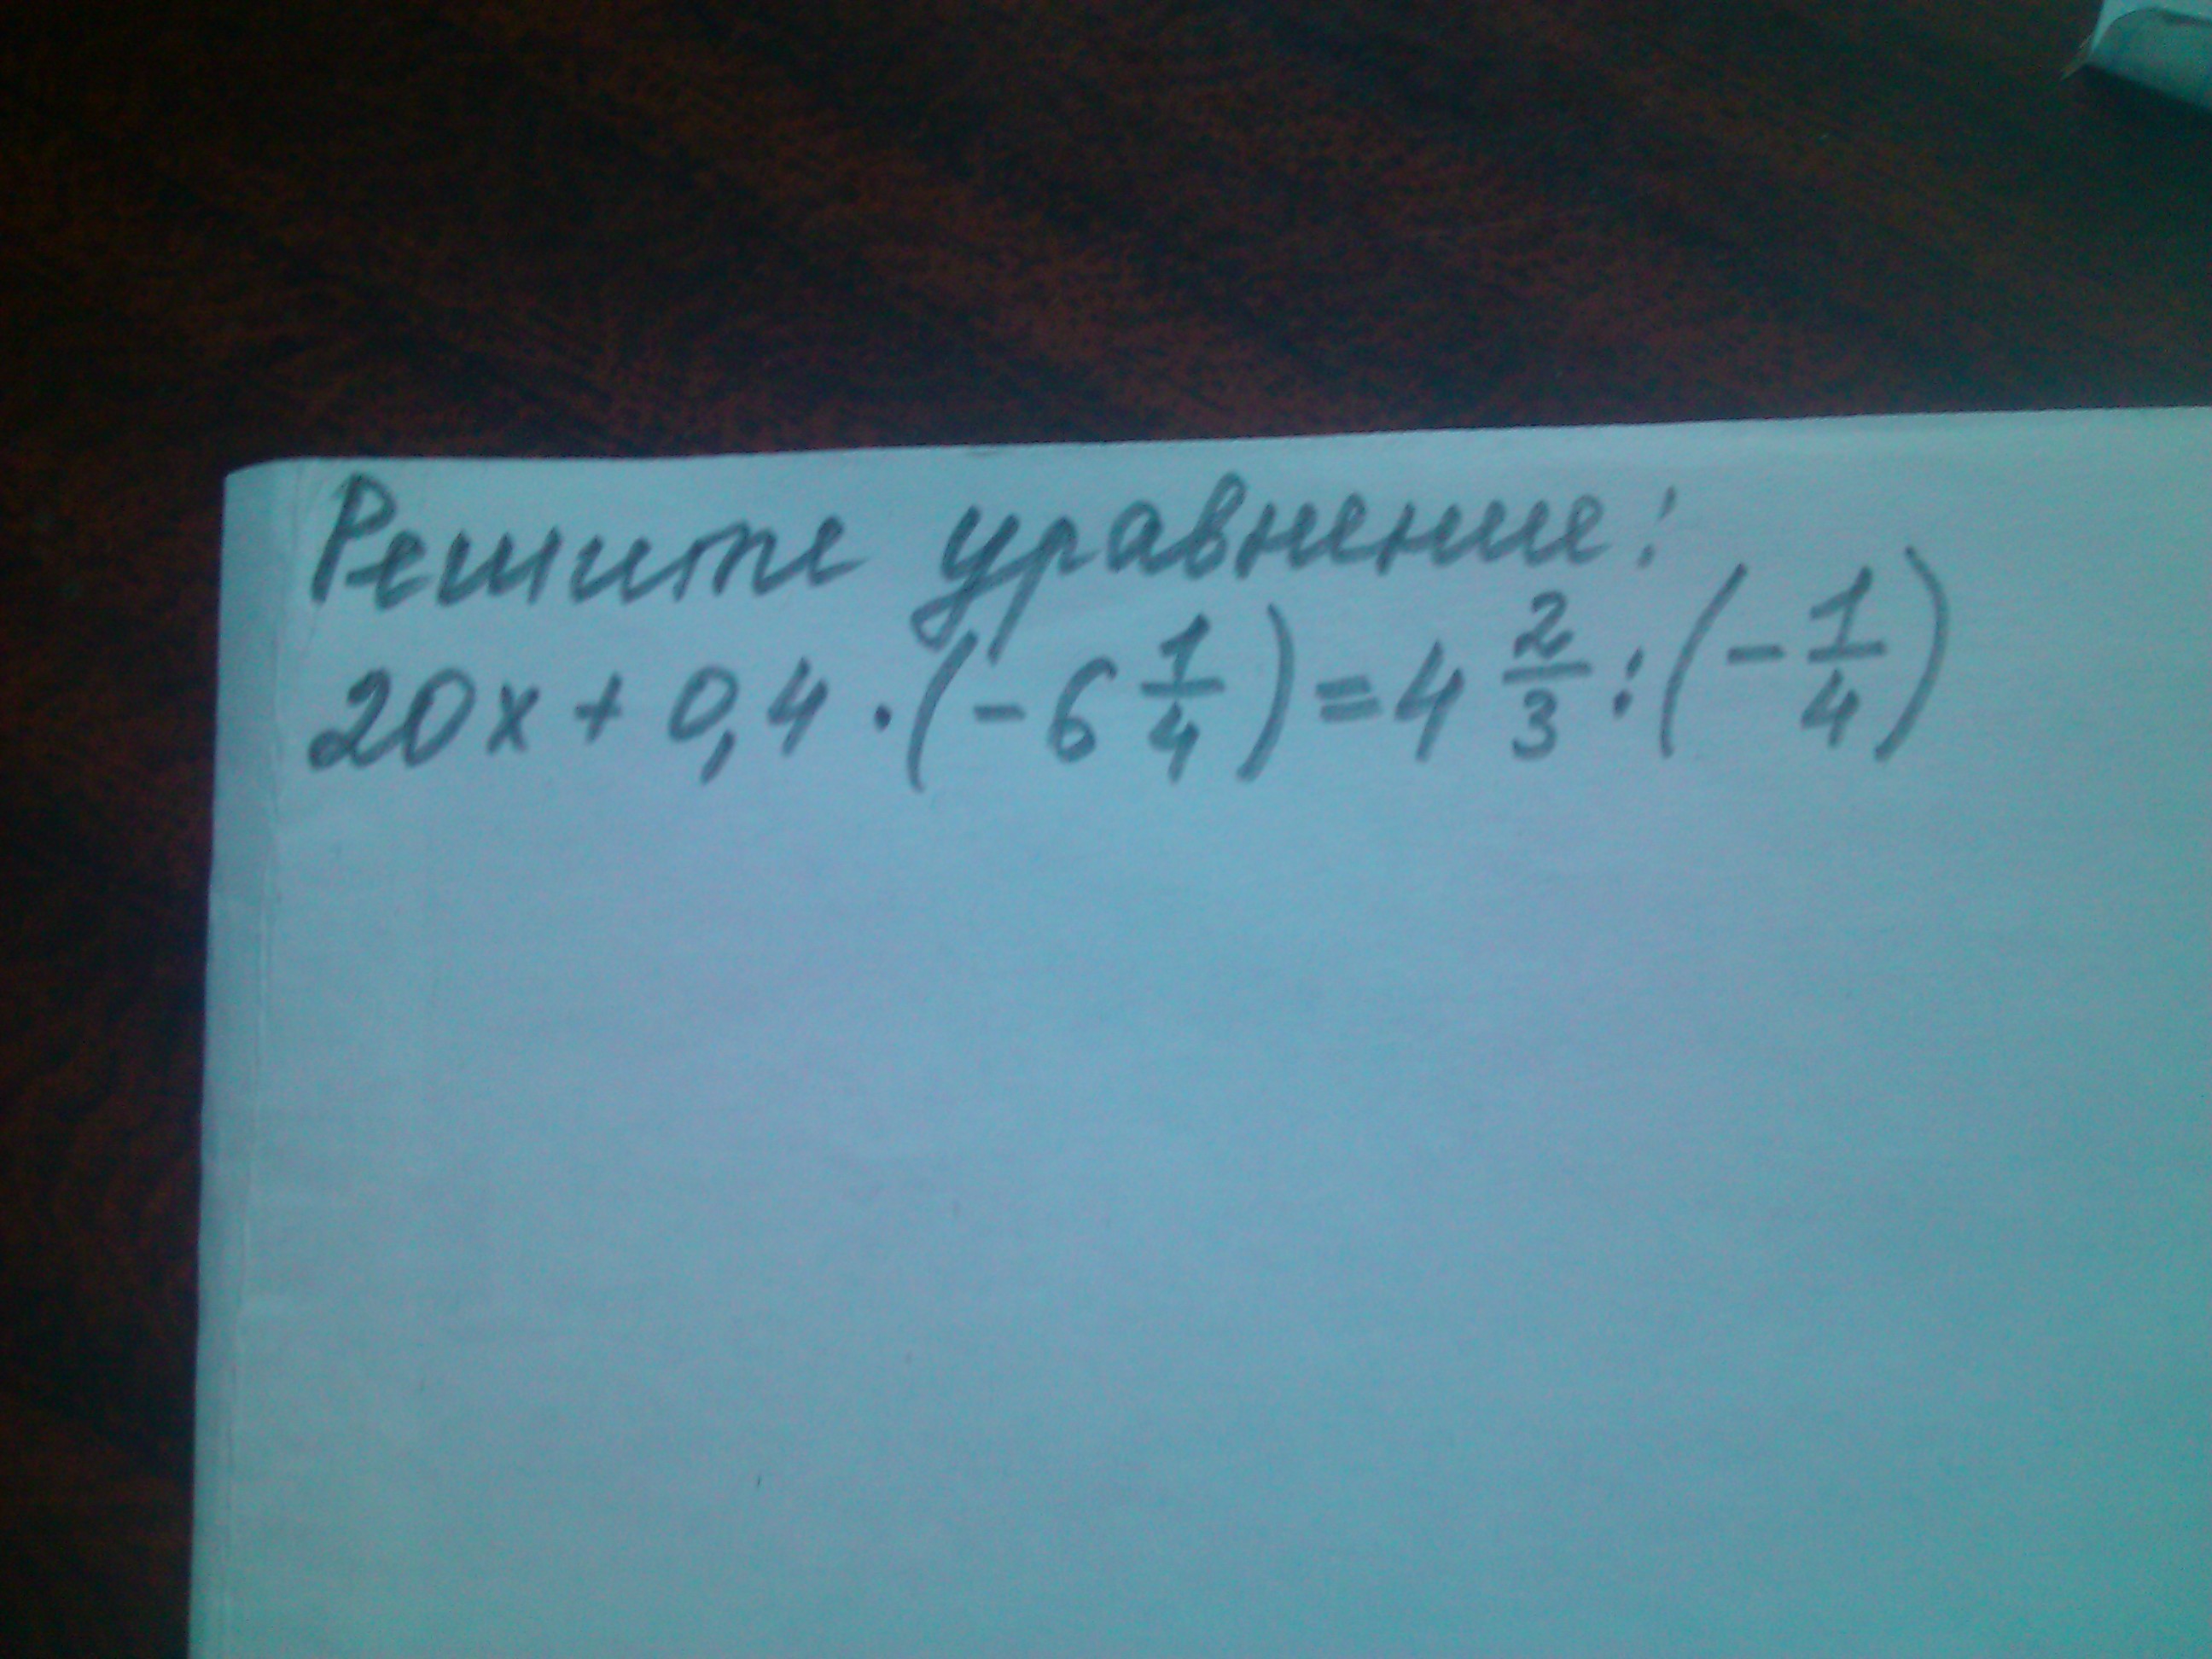 Решите уравнение:
20x + 0,4 · (-6 1/4) = 4 2/3 : (- 1/4)